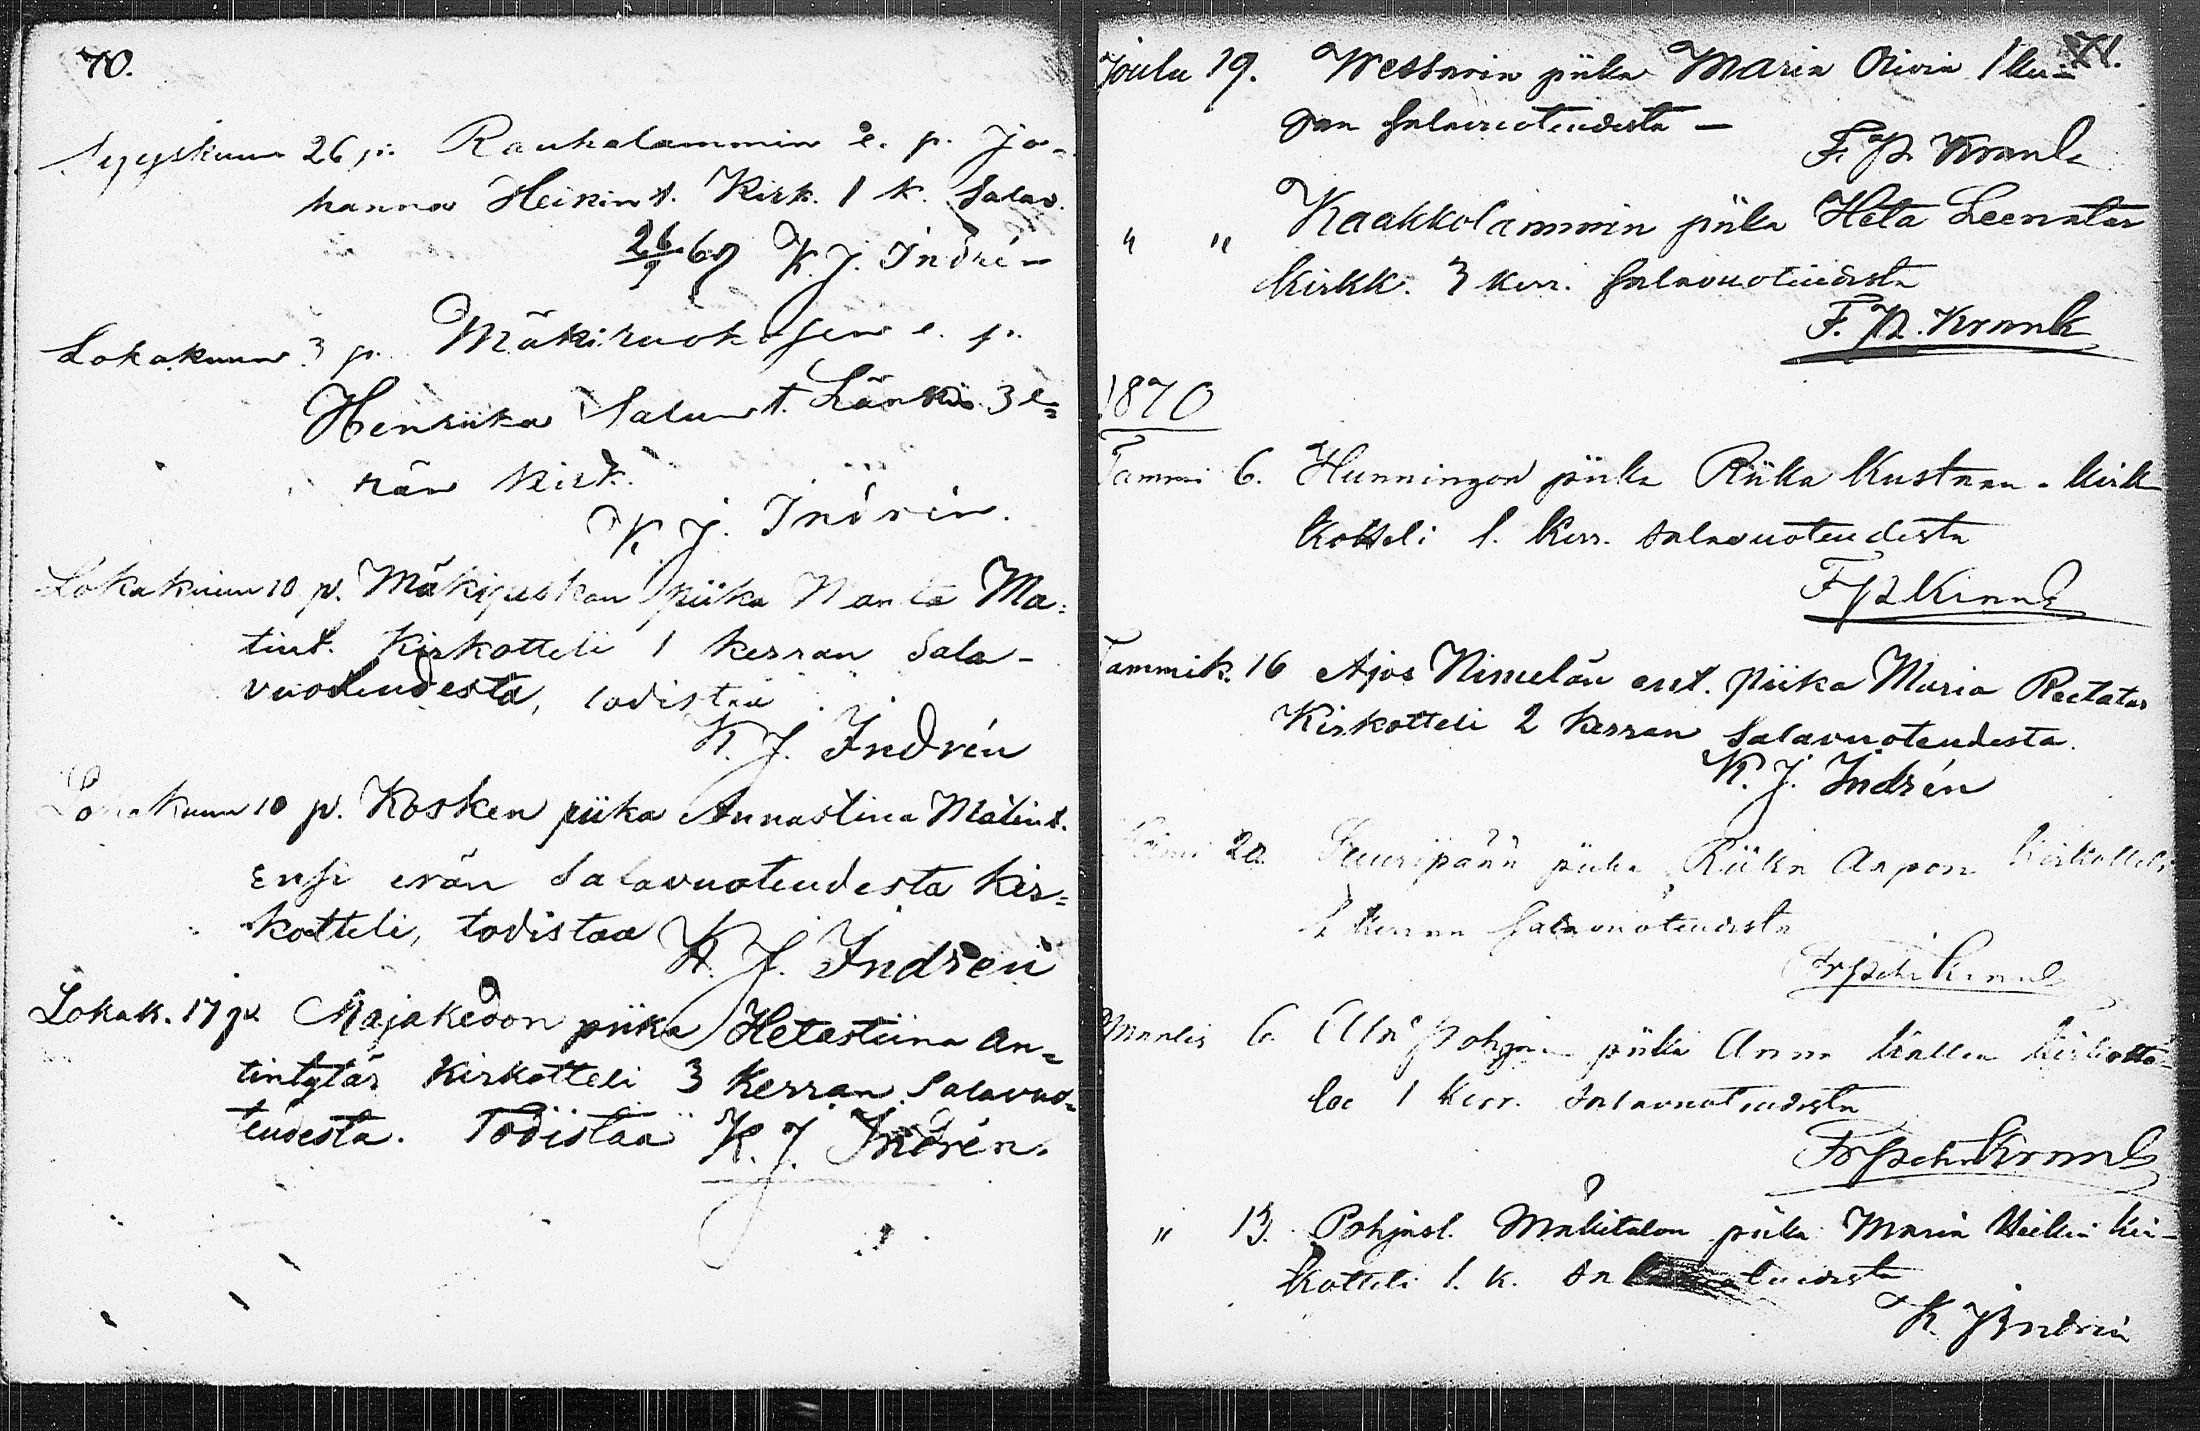 70.
Syyskuun 26 p. Rauhalammin e. p. Jo-
hanna Heikint. Kirk. 1 k. Salav.
26/9 69 K. J. Indrén
Lokakuun 3 p. Mäkiruohosen e. p.
Henriika Salunt. 3 e=
rän kirk.
K. J. Indrén.
Lokakuun 10 p. piika Manta Ma=
tint. Kirkotteli 1 kerran Sala-
vuoteudesta, todistaa
K. J. Indrén
Lokakuun 10 p. Kosken piika Annastina Matint.
Ensi erän Salavuoteudesta kir=
kotteli, todistaa K. J. Indrén
Lokak. 17 p. Majakedon piika Hetastiina An=
tintytär Kirkotteli 3 Kerran Salavuo=
teudesta. Todistaa K. J. Indrén.
71.
Joulu 19. piika Maria
salavuoteudesta —
F. P. Krank
" " Kaakkolammin piika Heta Leenatar
kirkk. 3 kerr. salavuoteudesta
F. P. Krank
1870
Tammi 6. Hunningon piika Riika Kustaan. kirk
kotteli 1. kerr. salavuoteudesta
F P Krank
Tammik. 16 Ajos Nimelän ent. piika Maria Reetatar
Kirkotteli 2 kerran Salavuoteudesta.
K. J. Indrén
20. Suuripään piika Riika Aapon kirkotteli
kerran salavuoteudesta
Krank
Maalis 6. Ala piika Anna Kallen kirkotta=
loe 1 kerr. salavuoteudesta
Krank
" 13. Pohjasl. Mäkitalon piika Maria Heikin kir-
kotteli 1. k. salavuoteudesta
K. J Indrén